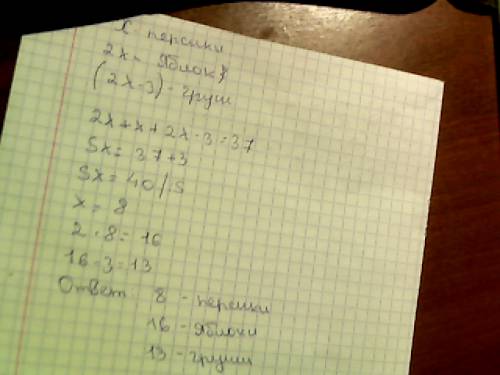 X персики
2x - яблок
(2x-3) - груш
2x+x+2x-3=37
5x=37+3
5x=40/:5
x=8
2·8=16
16-3=13
Ответ: 8 - персики
16 - яблоки
13 - груши